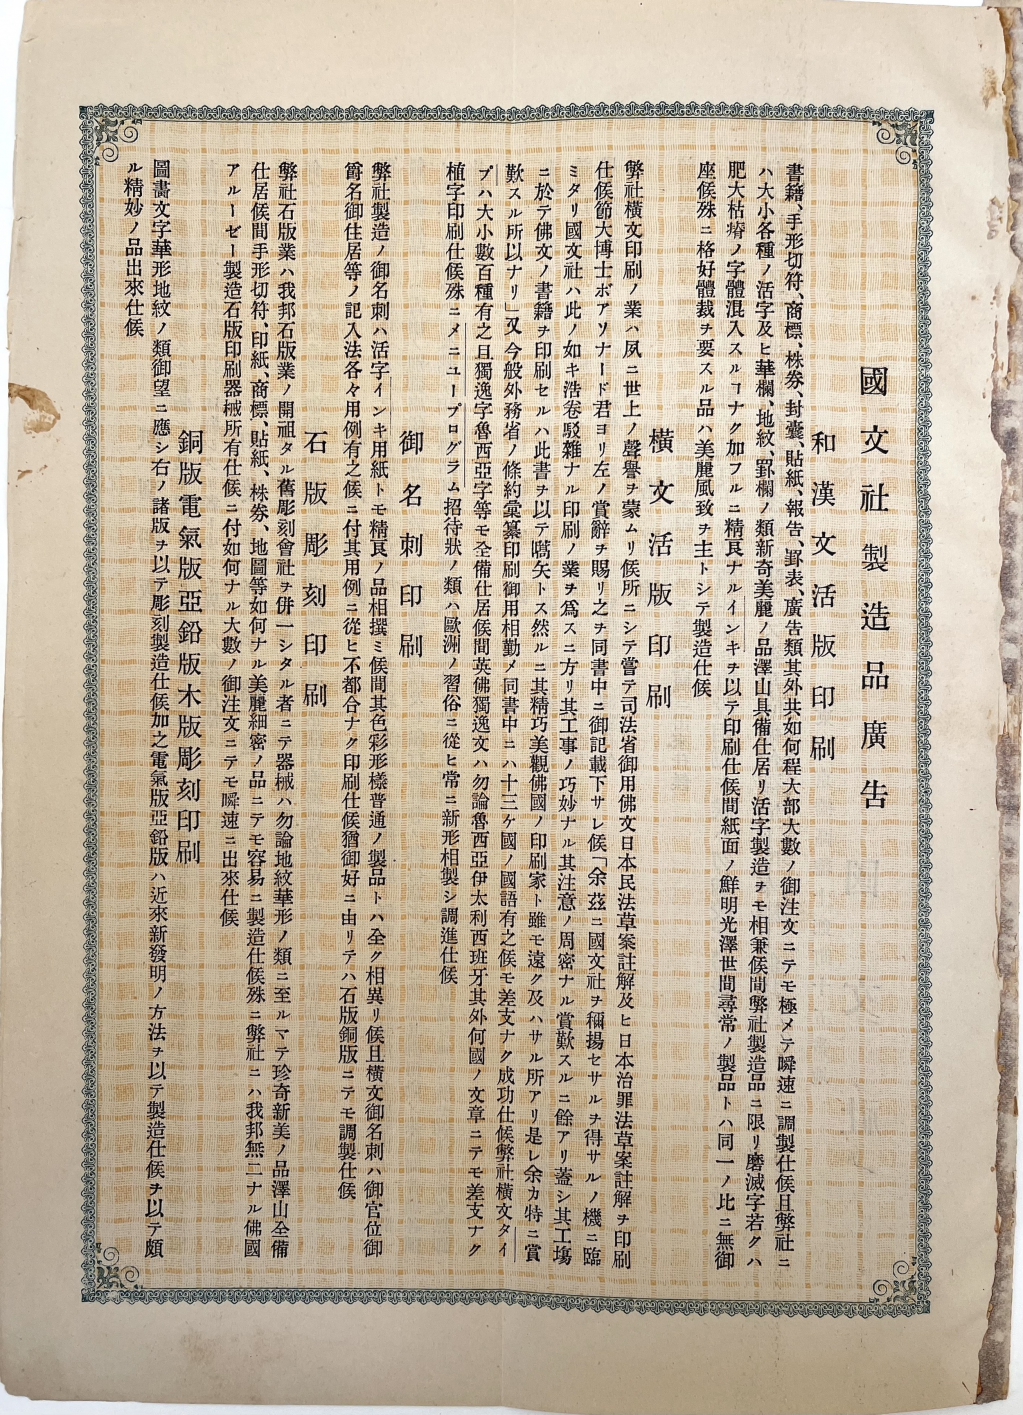 國文社製造品廣告
和漢文活版印刷
書籍、手形切符、商標、株券、封囊、貼紙、報告、罫表、廣告類其外共如何程大部大數ノ御注文ニテモ極メテ瞬速ニ調製仕候且弊社ニ
ハ大小各種ノ活字及ヒ華欄、地紋、罫欄ノ類新奇美麗ノ品澤山具備仕居リ活字製造ヲモ相兼候間弊社製造品ニ限リ磨滅字若クハ
肥大枯瘠ノ字體混入スルヿナク加フルニ精良ナルインキヲ以テ印刷仕候間紙面ノ鮮明光澤世間尋常ノ製品トハ同一ノ比ニ無御
座候殊ニ格好體裁ヲ要スル品ハ美麗風致ヲ主トシテ製造仕候
橫文活版印刷
弊社橫文印刷ノ業ハ夙ニ世上ノ聲譽ヲ蒙ムリ候所ニシテ嘗テ司法省御用佛文日本民法草案註解及ヒ日本治罪法草案註解ヲ印刷
仕候節大博士ボアソナード君ヨリ左ノ賞辭ヲ賜リ之ヲ同書中ニ御記載下サレ候「余茲ニ國文社ヲ稱揚セサルヲ得サルノ機ニ臨
ミタリ國文社ハ此ノ如キ浩卷駁雜ナル印刷ノ業ヲ爲スニ方リ其工事ノ巧妙ナル其注意ノ周密ナル賞歎スルニ餘アリ蓋シ其工塲
ニ於テ佛文ノ書籍ヲ印刷セルハ此書ヲ以テ嚆矢トス然ルニ其精巧美觀佛國ノ印刷家ト雖モ遠ク及ハサル所アリ是レ余カ特ニ賞
歎スル所以ナリ」又今般外務省ノ條約彙纂印刷御用相勤メ同書中ニハ十三ケ國ノ國語有之候モ差支ナク成功仕候弊社橫文タイ
プハ大小數百種有之且獨逸字魯西亞字等モ全備仕居候間英佛獨逸文ハ勿論魯西亞伊太利西班牙其外何國ノ文章ニテモ差支ナク
植字印刷仕候殊ニメニュープログラム招待狀ノ類ハ歐洲ノ習俗ニ從ヒ常ニ新形相製シ調進仕候
御名刺印刷
弊社製造ノ御名刺ハ活字インキ用紙トモ精良ノ品相撰ミ候間其色彩形樣普通ノ製品トハ全ク相異リ候且橫文御名刺ハ御官位御
爵名御住居等ノ記入法各々用例有之候ニ付其用例ニ從ヒ不都合ナク印刷仕候猶御好ニ由リテハ石版銅版ニテモ調製仕候
石版彫刻印刷
弊社石版業ハ我邦石版業ノ開祖タル舊彫刻會社ヲ併一シタル者ニテ器械ハ勿論地紋華形ノ類ニ至ルマテ珍奇新美ノ品澤山全備
仕居候間手形切符、印紙、商標、貼紙、株券、地圖等如何ナル美麗細密ノ品ニテモ容易ニ製造仕候殊ニ弊社ニハ我邦無二ナル佛國
アルーゼー製造石版印刷器械所有仕候ニ付如何ナル大數ノ御注文ニテモ瞬速ニ出來仕候
銅版電氣版亞鉛版木版彫刻印刷
圖書文字華形地紋ノ類御望ニ應シ右ノ諸版ヲ以テ彫刻製造仕候加之電氣版亞鉛版ハ近來新發明ノ方法ヲ以テ製造仕候ヲ以テ頗
ル精妙ノ品出來仕候